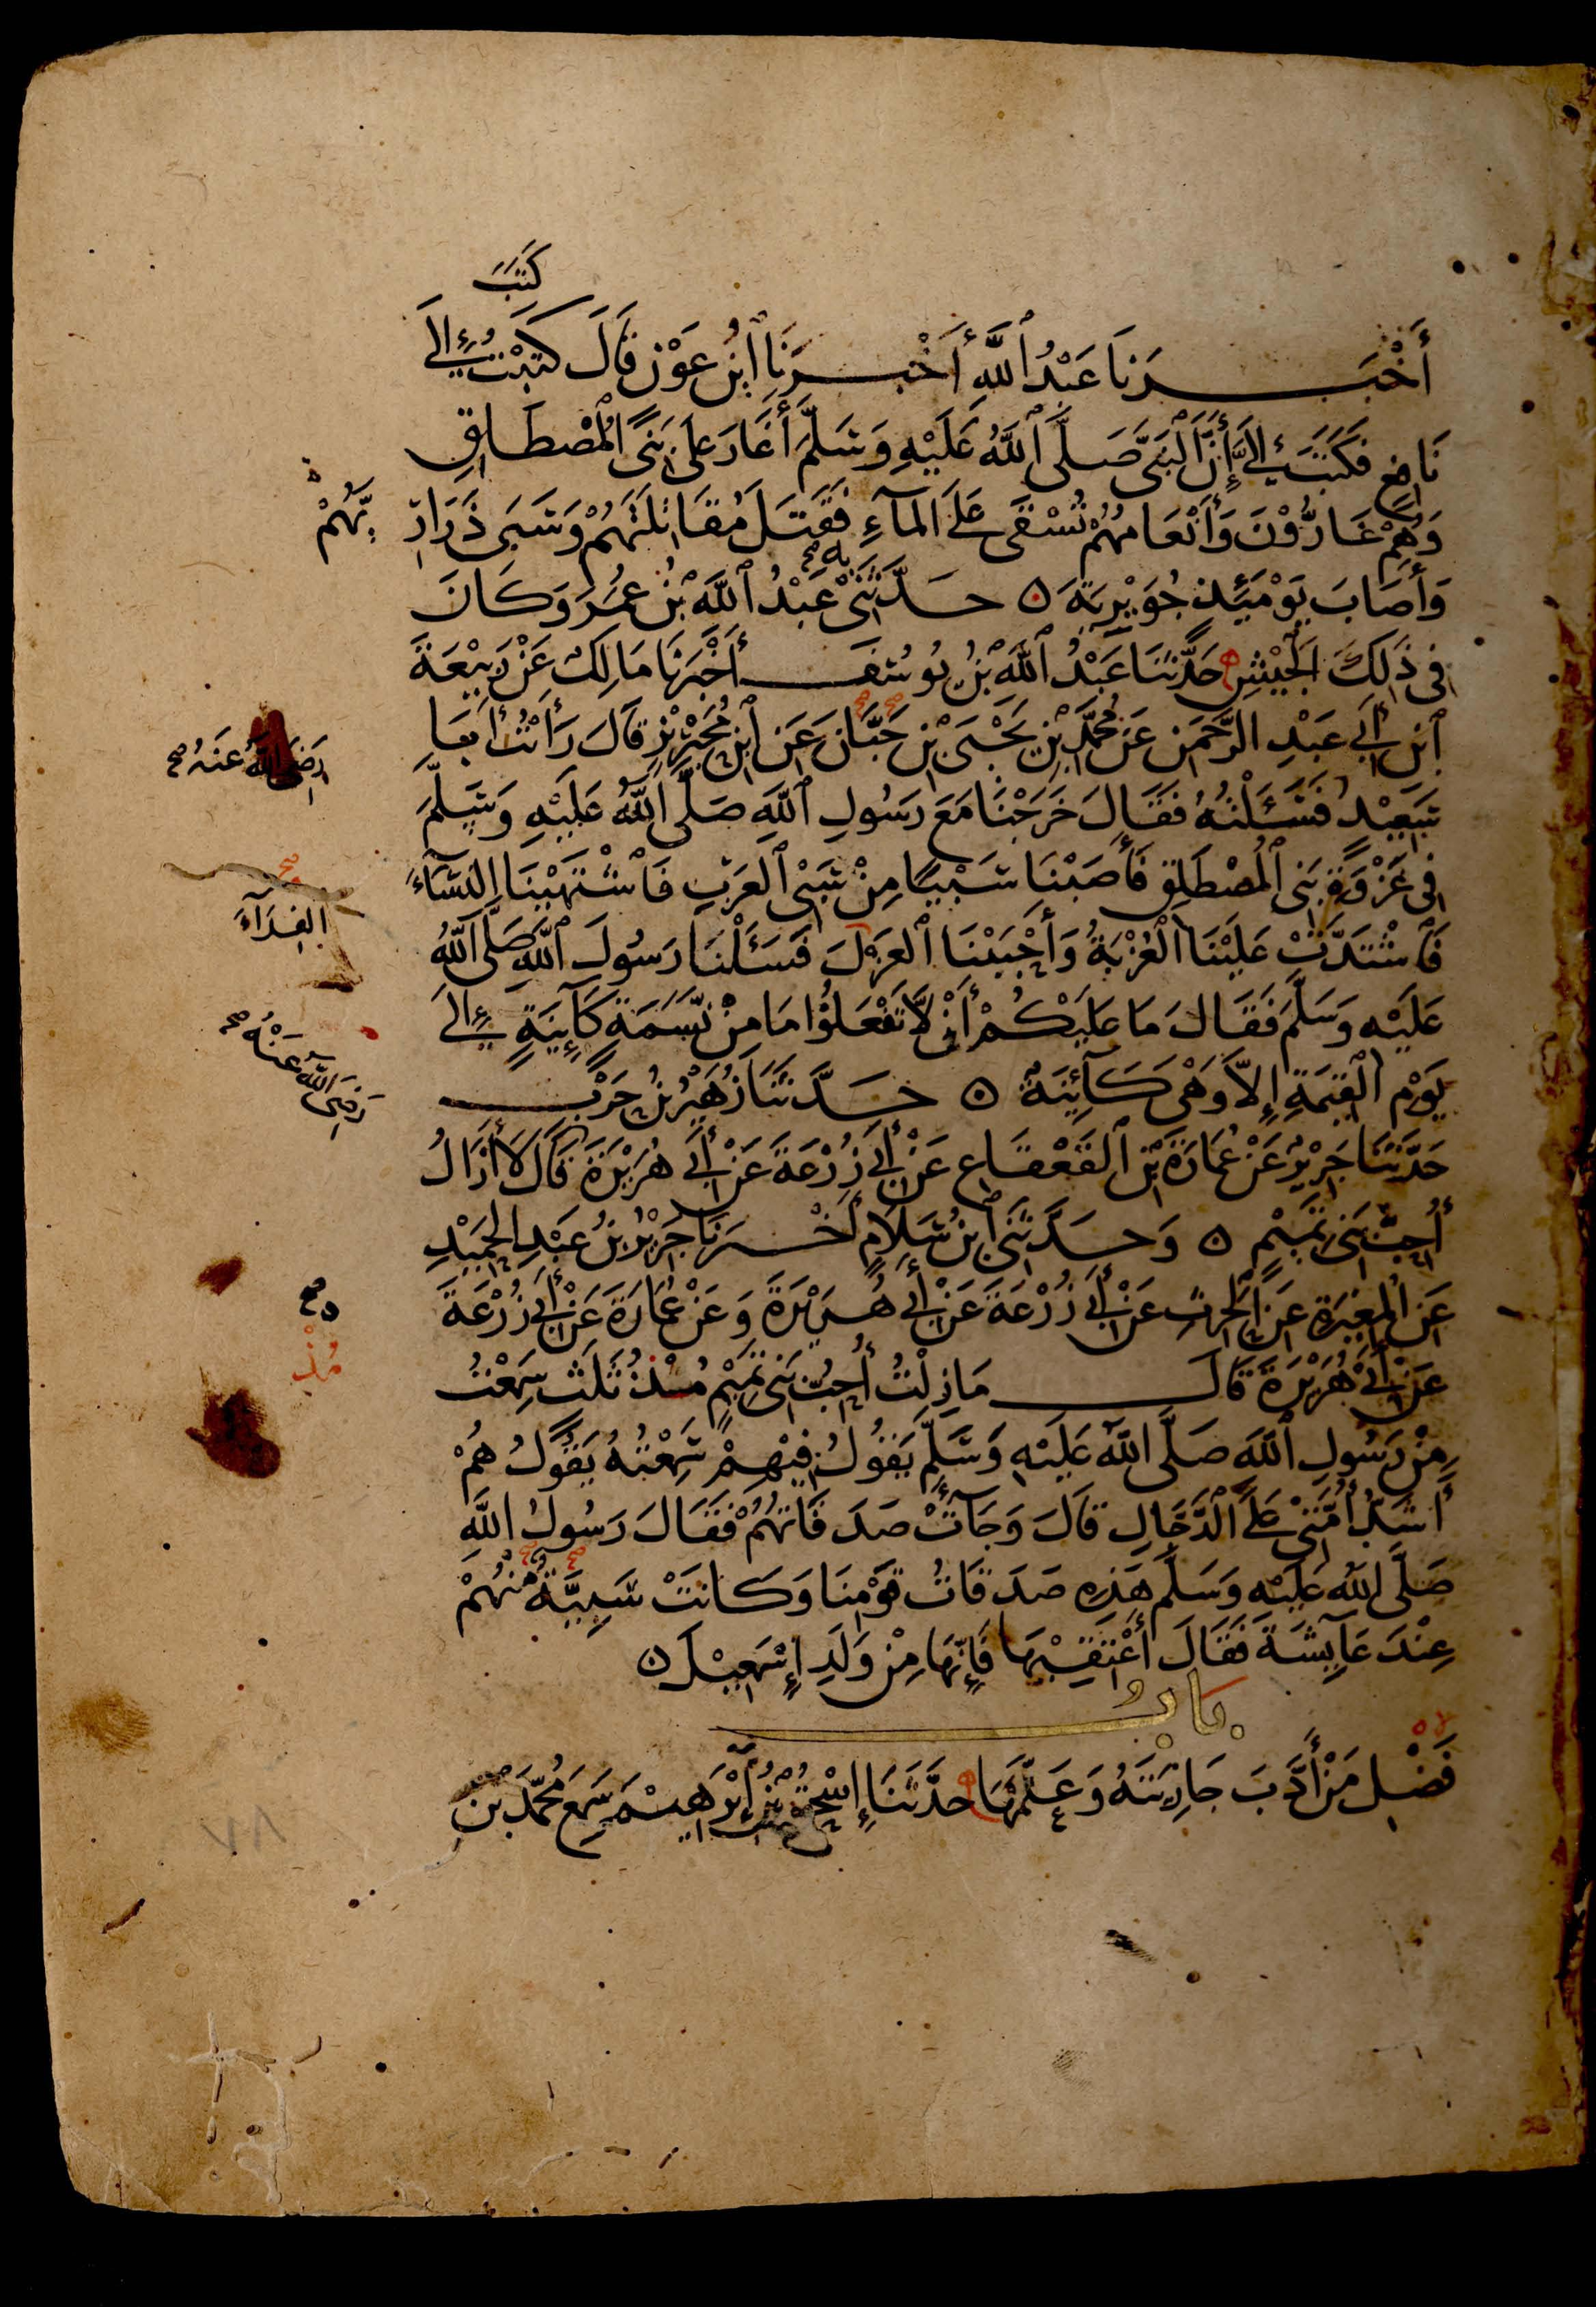 كَتَبَ
أَخْبَرَنَا عَبْدُ ٱللَّهِ أَخْبَرَنَا ٱبْنُ عَوْنٍ قَالَ كَتَبْتُ إِلَى
نَافِعٍ فَكَتَبَ إِلَيَّ أَنَّ ٱلنَّبِيَّ صَلَّى ٱللَّهُ عَلَيْهِ وَسَلَّمَ أَغَارَ عَلَى بَنِي ٱلْمُصْطَلِقِ
وَهُمْ غَارُّوْنَ وَأَنْعَامُهُمْ تُسْقَى عَلَى المَآءِ فَقَتَلَ مُقَاتِلَتَهُمْ وَسَبَى ذَرَارِ
يَّهُمْ
وَأَصَابَ يَوْمَئِذٍ جُوَيْرِيَةَ ه حَدَّثَنِيْ بِهِ صح عَبْدُ ٱللَّهِ بْنُ عُمَرَ وَكَانَ
فِي ذَلِكَ الجَيْشِ حَدَّثَنَا عَبْدُ ٱللَّهِ بْنُ يُوسُفَ أَخْبَرَنَا مَالِكٌ عَنْ رَبِيْعَةَ
ٱبْنِ أَبِي عَبْدِ الرَّحْمَنِ عَنْ مُحَمَّدِ بْنِ يَحْيَى بْنِ حَبَّانَ عَنِ ٱبْنِ مُحَيْرِيْزٍ قَالَ رَأَيْتُ أَبَا
رَضِيَ اللَّهُ عَنْهُ صح
سَعِيْدٍ فَسَئَلْتُهُ فَقَالَ خَرَجْنَا مَعَ رَسُولِ ٱللَّهِ صَلَّى ٱللَّهُ عَلَيْهِ وَسَلَّمَ
فِي غَزْوَةِ بَنِي ٱلْمُصْطَلِقِ فَأَصَبْنَا سَبْيًا مِنْ سَبْيِ ٱلعَرَبِ فَٱشْتَهَيْنَا النِّسَآءَ
الفِدَآءَ
فَٱشْتَدَّتْ عَلَيْنَا الْعُزْبَةُ وَأَحْبَبْنَا ٱلعَزْلَ فَسَئَلْنَا رَسُولَ ٱللَّهِ صَلَّى ٱللَّهُ
عَلَيْهِ وَسَلَّمَ فَقَالَ مَا عَلَيْكُمْ أَنْ لَّا تَفْعَلُوْا مَا مِنْ نَّسَمَةٍ كَآئِنَةٍ إِلَى
يَوْمِ القِيَمَةِ إِلَّا وَهْيَ كَآئِنَةٌ ه حَدَّثَنَا زُهَيْرُ بْنُ حَرْبٍ
رَضِيَ اللَّهُ عَنْهُ صح
حَدَّثَنَا جَرِيْرٌ عَنْ عُمَارَةَ بْنِ ٱلقَعْقَاعِ عَنْ أَبِي زُرْعَةَ عَنْ أَبِي هُرَيْرَةَ قَالَ لَا أَزَالُ
أُحِبُّ بَنِي تَمِيْمٍ ه وَحَدَّثَنِي ٱبْنُ سَلَامٍ أَخْبَرَنَا جَرِيْرُ بْنُ عَبْدِ الحَمِيْدِ
عَنِ المُغِيْرَةِ عَنِ ٱلْحَرِثِ عَنْ أَبِي زُرْعَةَ عَنْ أَبِي هُرَيْرَةَ وَعَنْ عُمَارَةَ عَنْ أَبِي زُرْعَةَ
عَنْ أَبِي هُرَيْرَةَ قَالَ مَا زِلْتُ أُحِبُّ بَنِي تَمِيْمٍ مُنْذُ ثَلَثٍ سَمِعْتُ
مُذْ
مِنْ رَسُولِ ٱللَّهِ صَلَّى ٱللَّهُ عَلَيْهِ وَسَلَّمَ يَقُولُ فِيْهِمْ سَمِعْتُهُ يَقُوْلُ هُمْ
أَشَدُّ أُمَّتِيْ عَلَى الدَّجَّالِ قَالَ وَجَآءَتْ صَدَقَاتُهُمْ فَقَالَ رَسُولُ ٱللَّهِ
صَلَّى ٱللَّهُ عَلَيْهِ وَسَلَّمَ هَذِهِ صَدَقَاتُ قَوْمِنَا وَكَانَتْ سَبِيَّةٌ مِنْهُمْ
عِنْدَ عَآئِشَةَ فَقَالَ أَعْتِقِيْهَا فَإِنَّهَا مِنْ وَلَدِ إِسْمَعِيْلَ ه
بَابُ
فَضْلِ مَنْ أَدَّبَ جَارِيَتَهُ وَعَلَّمَهَا حَدَّثَنَا إِسْحَقُ بْنُ إِبْرَهِيْمَ سَمِعَ مُحَمَّدَ بْنَ
٨٧